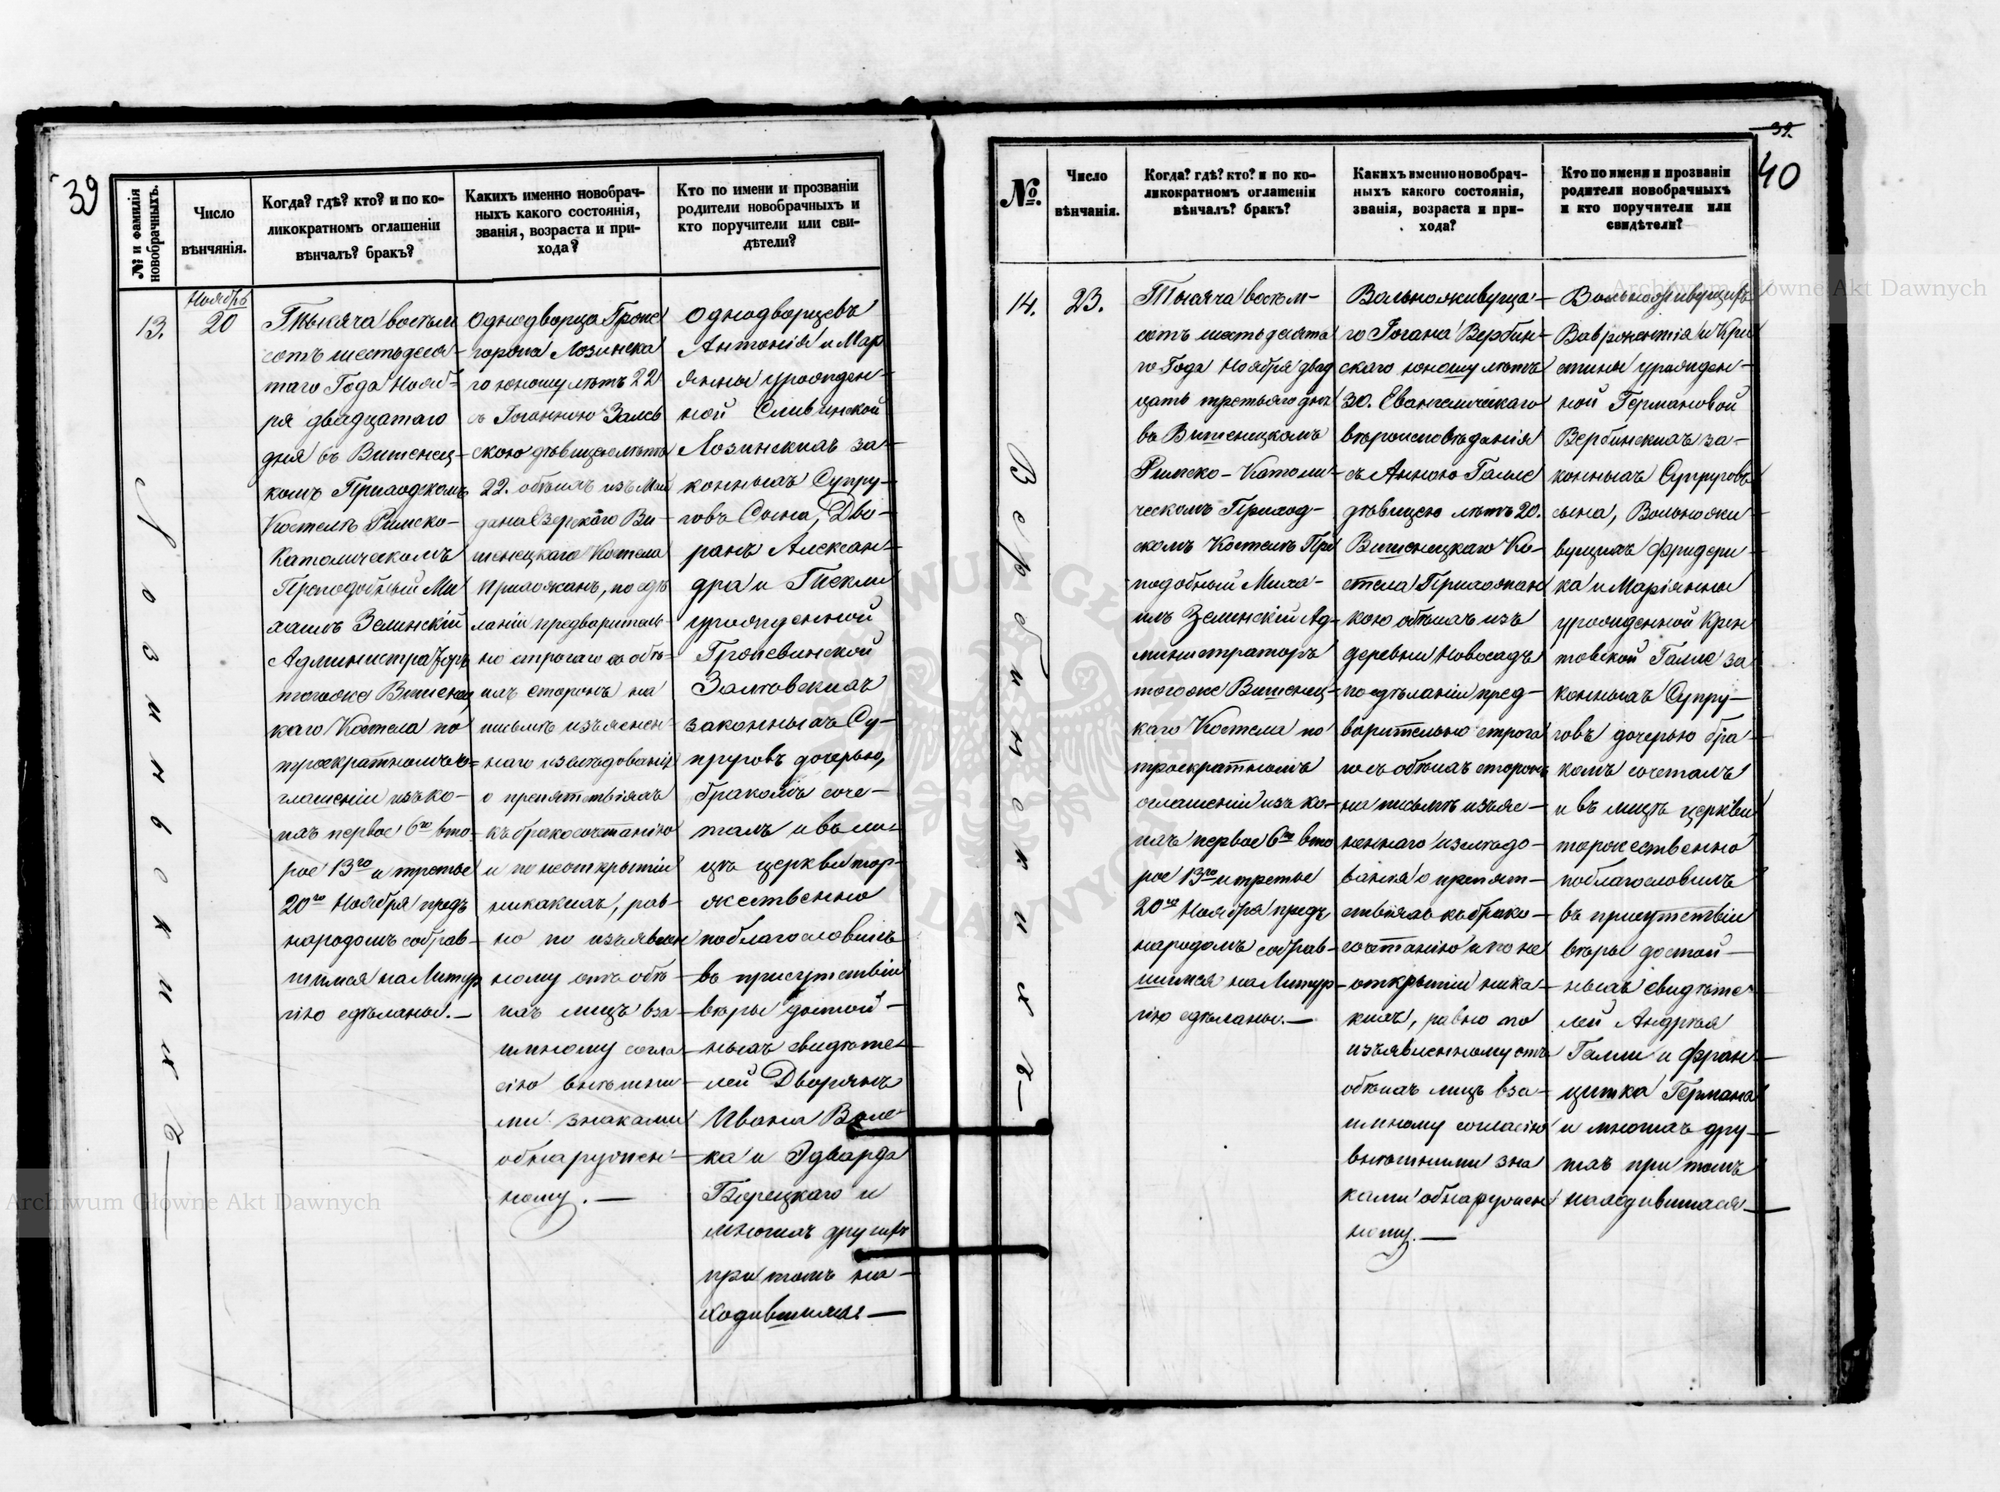 39
№ и фамилія новобрачныхъ.
Число вѣнчанія.
Когда? гдѣ? кто? и по ко-
ликократномъ оглашеніи
вѣнчалъ? бракъ?
Какихъ именно новобрач-
ныхъ какого состоянія,
званія, возраста и при-
хода?
Кто по имени и прозваніи
родители новобрачныхъ и
кто поручители или сви-
дѣтели?
13.
Лозинскихъ
Ноябрь
20
Тысяча восемь
сотъ шестьдеся-
таго Года Нояб-
ря двадцатаго
дня въ Витенец-
комъ Приходскомъ
Костелѣ Римско-
Католическомъ
Преподобный Ми
хаилъ Зелинскій
Администраторъ
тогоже Витенец
каго Костела по
троекратномъ о-
глашеніи изъ ко-
ихъ первое 6го вто
рое 13го и третье
20го Ноября предъ
народомъ собрав-
шимся на Литур
гію сдѣланы.—
Однодворца
Лозинска
го юношу лѣтъ 22
съ Іоанною Залев
скою дѣвицею лѣтъ
22. обѣихъ изъ
Ви-
тенецкаго Костела
Прихожанъ, по сдѣ
ланіи предваритель-
но строгаго со обѣ-
ихъ сторонъ на
письмѣ изъяснен-
наго изслѣдованія
о препятствіяхъ
къ бракосочетанію
и по неоткрытіи
никакихъ, рав-
но по изъявлен
ному отъ обѣ-
ихъ лицъ вза-
имному согла-
сію внѣшни-
ми знаками
обнаружен-
ному.—
Однодворцевъ
Антонія и Мар
янны урожден-
ной Сливинской
Лозинскихъ за-
конныхъ Супру-
говъ Сына, Дво-
рянъ Алексан-
дра и Теклы
урожденной
Залевскихъ
законныхъ Су-
пруговъ дочерью,
бракомъ соче-
талъ и въ ли-
цѣ церкви тор-
жественно
поблагословилъ
въ присутствіи
вѣры достой-
ныхъ свидѣте-
лей Дворянъ
Ивана
ка и Эдварда
и
многихъ другихъ
при томъ на-
ходившихся—
39.
40
№.
Число
вѣнчанія.
Когда? гдѣ? кто? и по ко-
ликократномъ оглашеніи
вѣнчалъ? бракъ?
Какихъ именно новобрач-
ныхъ какого состоянія,
званія, возраста и при-
хода?
Кто по имени и прозваніи
родители новобрачныхъ
и кто поручители или
свидѣтели?
14.
Вербинскихъ—
23.
Тысяча восемь-
сотъ шестьдесята
го Года Ноября двад
цать третьяго дня
въ Витенецкомъ
Римско-Католи-
ческомъ Приход-
скомъ Костелѣ Пре
подобный Миха-
илъ Зелинскій Ад-
министраторъ
тогоже Витенец-
каго Костела по
троекратномъ
оглашеніи изъ ко-
ихъ первое 6го вто
рое 13го и третье
20го Ноября предъ
народомъ собрав-
шимся на Литур
гію сдѣланы.—
Вольноживуща-
го Іогана Вербин-
скаго юношу лѣтъ
30. Евангелическаго
вѣроисповѣданія
съ Анною Галле
дѣвицею лѣтъ 20.
Витенецкаго Ко-
стела Прихожан
кою обѣихъ изъ
деревни Новосадъ
по сдѣланіи пред-
варительно строга
го съ обѣихъ сторонъ
на письмѣ изъяс-
неннаго изслѣдо-
ванія о препят-
ствіяхъ къ брако-
сочетанію и по не
открытіи ника-
кихъ, равно по
изъявленному отъ
обѣихъ лицъ вза-
имному согласію
внѣшними зна
ками обнаружен
ному.—
Вольноживущихъ
Вавронентія и Кри
стины урожден-
ной Германовой
Вербинскихъ за-
конныхъ Супруговъ
сына, Вольножи-
вущихъ Фридери-
ка и Маріянны
урожденной
Галле за
конныхъ Супру-
говъ дочерью бра-
комъ сочеталъ
и въ лицѣ церкви
торжественно
поблагословилъ
въ присутствіи
вѣры достой-
ныхъ свидѣте-
лей Андрея
Галли и Фран-
цишка Германа
и многихъ дру-
гихъ при томъ
находившихся—
Archiwum Główne Akt Dawnych
Archiwum Główne Akt Dawnych